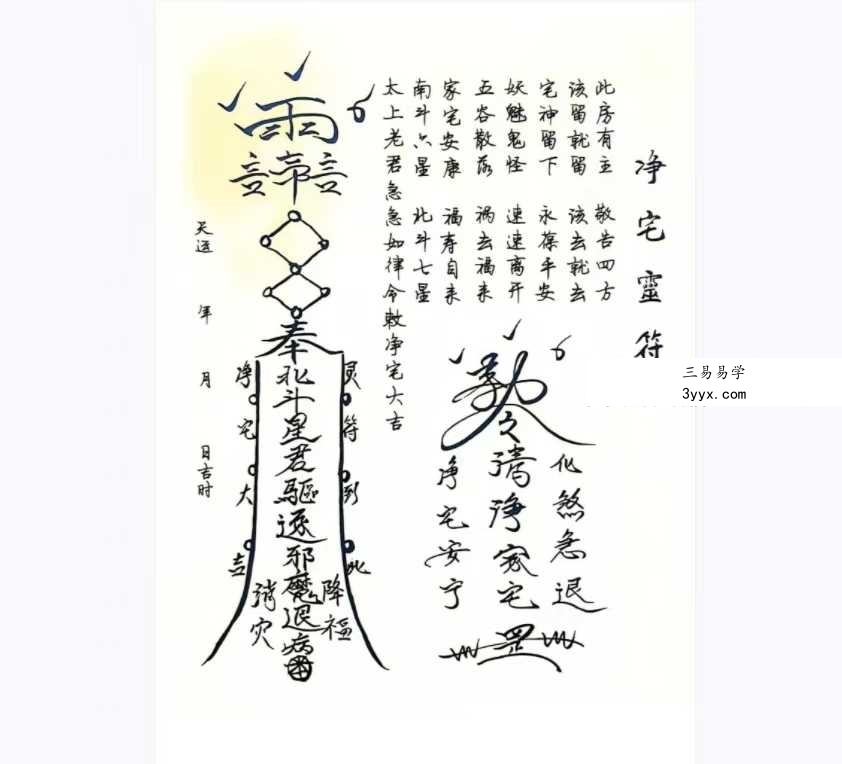 净宅靈符
此房有主 敬告四方
该留就留 该去就去
宅神留下 永葆平安
妖魅鬼怪 速速离开
五谷散落 祸去福来
家宅安康 福寿自来
南斗六星 北斗七星
太上老君急急如律令敕净宅大吉
三易易学
3yyx.com
化煞急退
清净家宅罡
净宅安宁
雨
言帝言
奉北斗星君驱逐邪魔退病
灵符到此
降福
净宅大吉
消灾
天运 年 月 日吉时